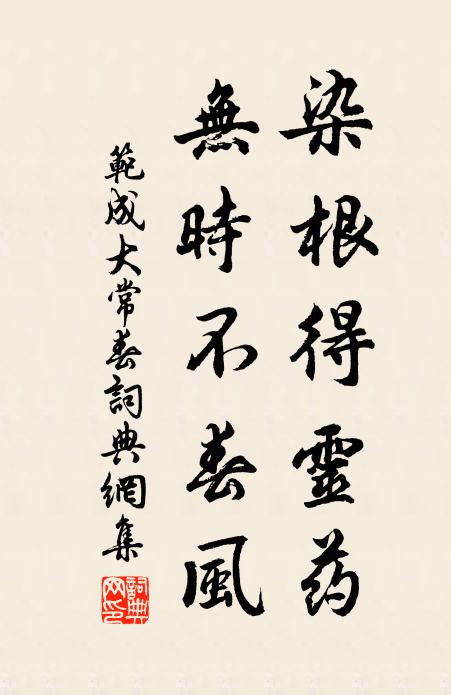 染根得靈药
無時不春風
範成大常春詞典網集
詞典网印